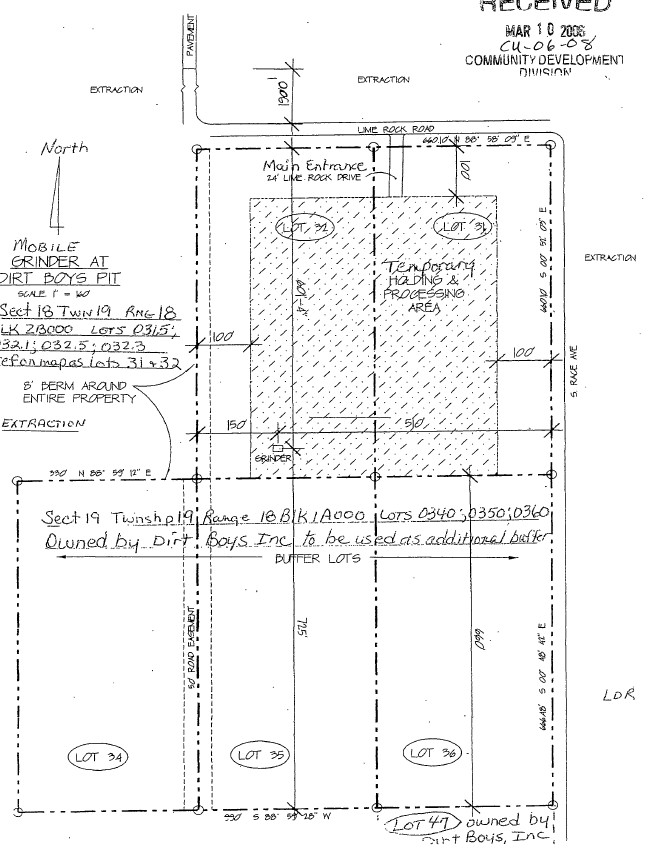 RECEIVED
MAR 10 2006
CU-06-08
COMMUNITY DEVELOPMENT
DIVISION
PAVEMENT
EXTRACTION
1390'
EXTRACTION
LIME ROCK ROAD
660.10 N 88° 58' 09" E
North
Main Entrance
24' LIME ROCK DRIVE
100'
LOT 32
LOT 31
MOBILE
GRINDER AT
DIRT BOYS PIT
SCALE 1" = 160'
Sect 18 TWN 19 RNG 18
LK 2B000 LOTS 031.5;
032.1; 032.5; 032.3
ref on map as lots 31 + 32
Temporary
HOLDING &
PROCESSING
AREA
601'-4"
EXTRACTION
100'
100'
S. RACE AVE
8' BERM AROUND
ENTIRE PROPERTY
EXTRACTION
150'
510'
GRINDER
330' N 88° 59' 12" E
Sect 19 Twnshp 19 Range 18 Blk 1A000 LOTS 0340; 0350; 0360
Owned by Dirt Boys Inc to be used as additional buffer
BUFFER LOTS
50' ROAD EASEMENT
725'
690'
666.48' S 00° 48' 42" E
LDR
LOT 34
LOT 35
LOT 36
330' S 88° 59' 28" W
LOT 47 owned by
Dirt Boys, Inc